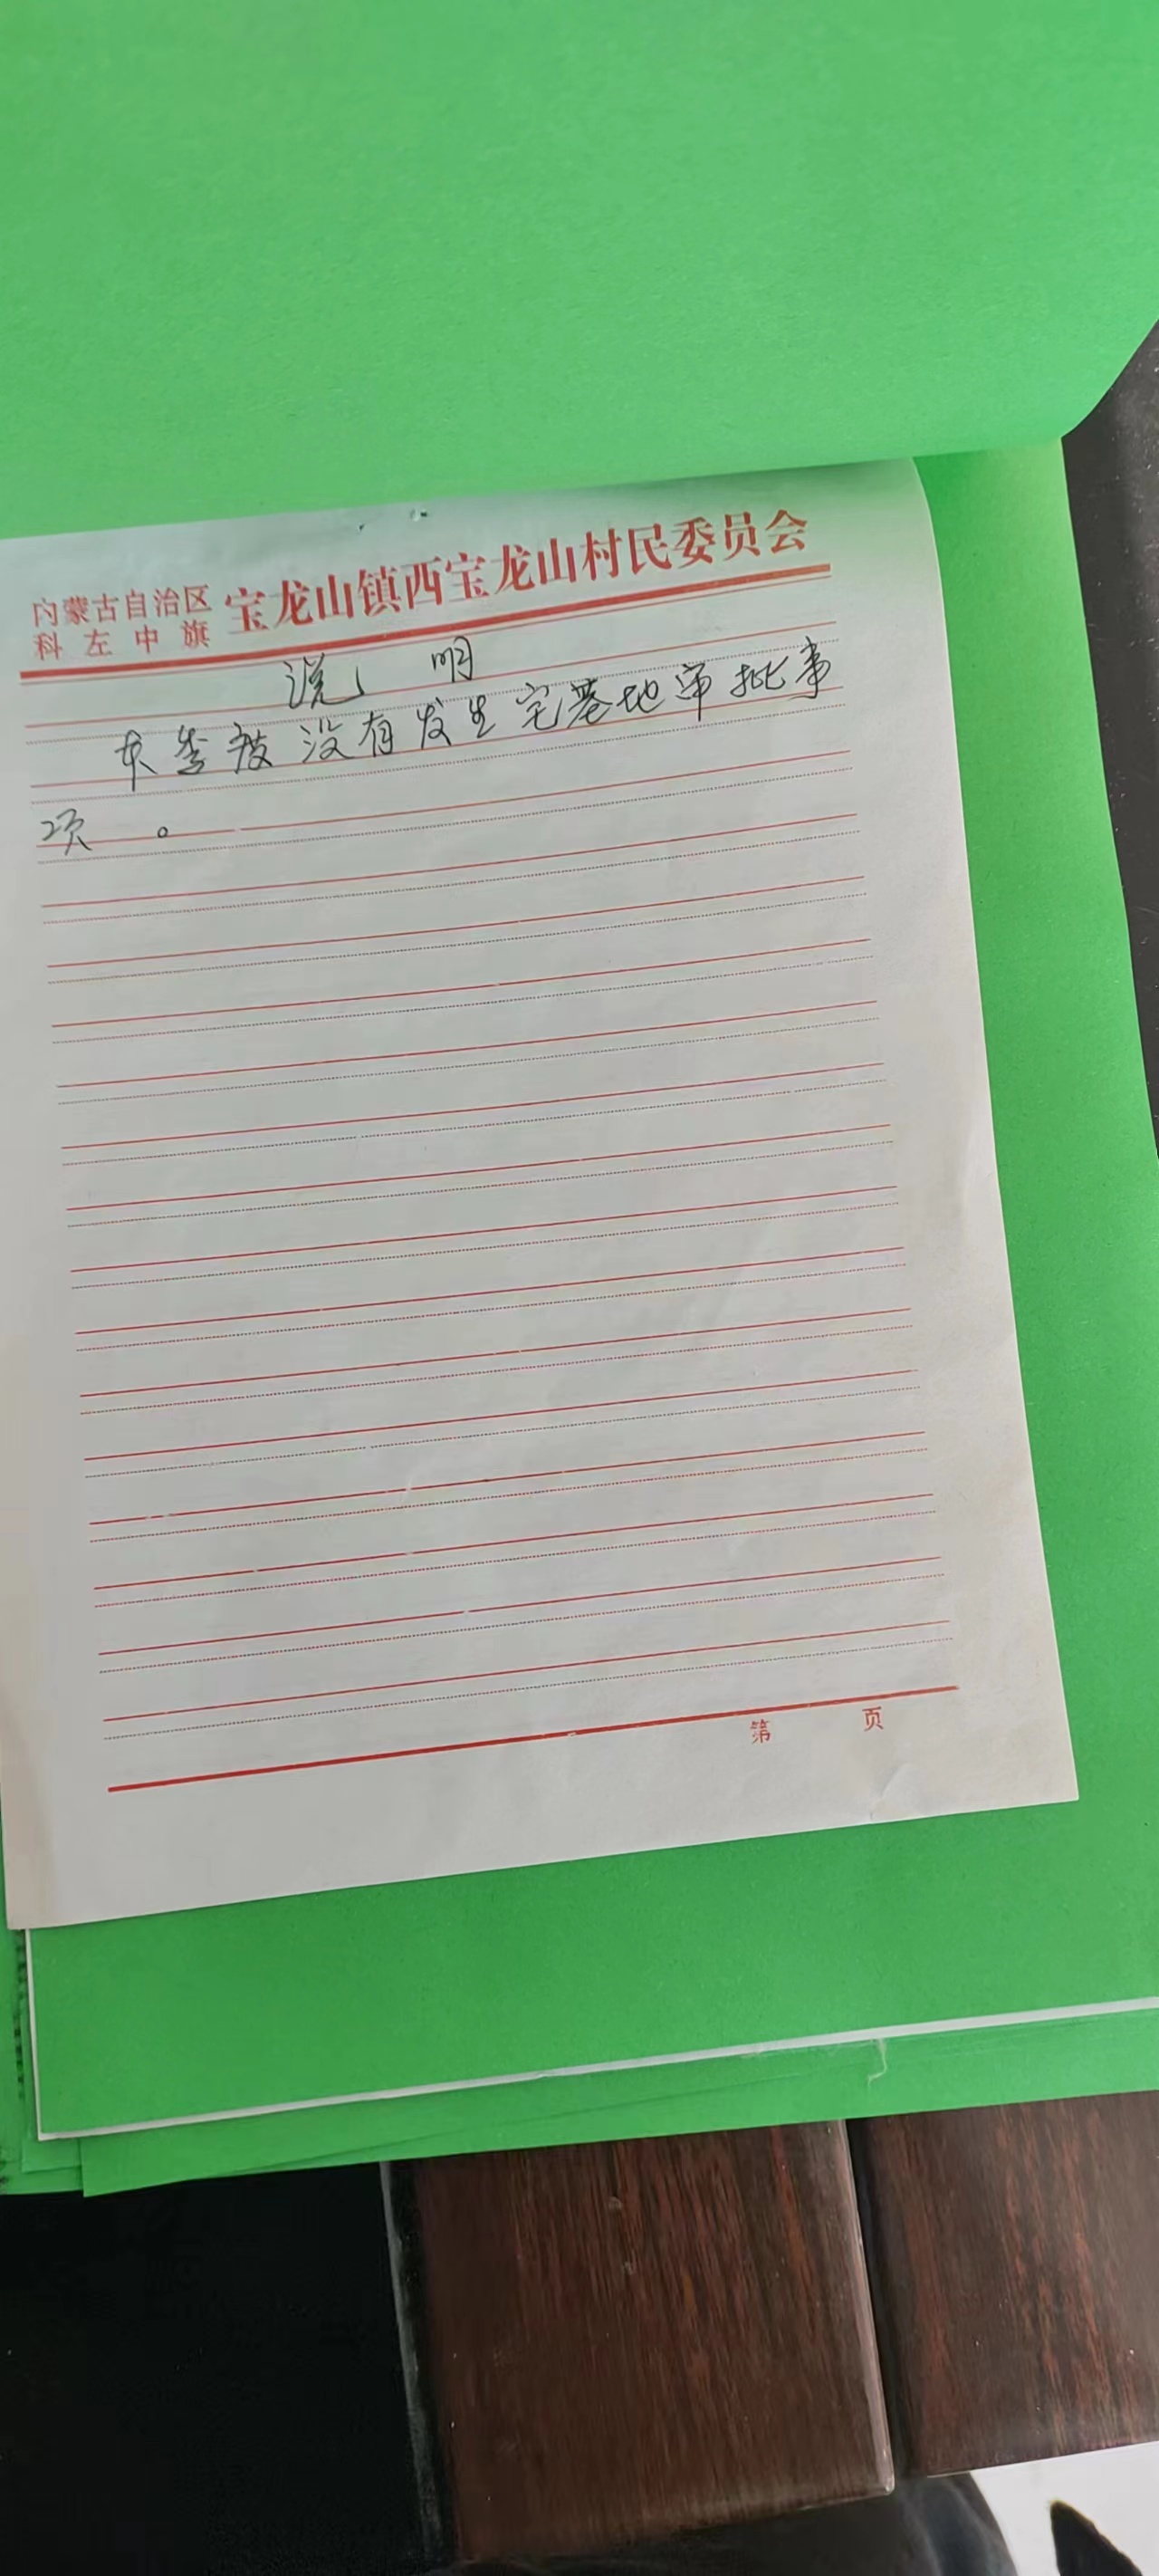 内蒙古自治区
科左中旗
宝龙山镇西宝龙山村民委员会
说明
本季度没有发生宅基地审批事
项。
第 页